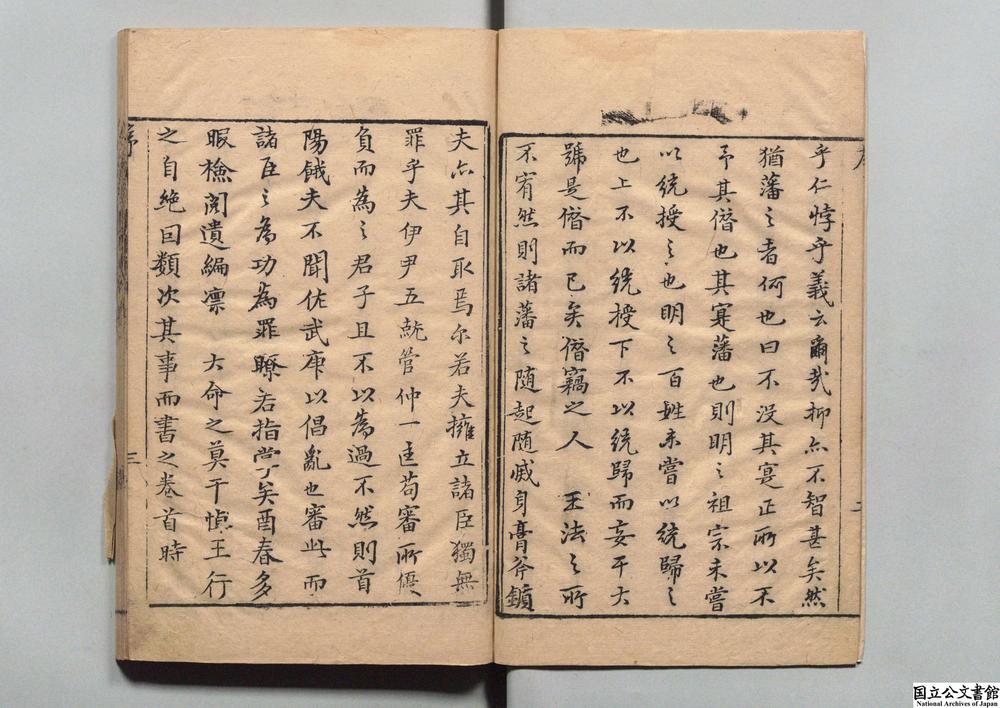 乎仁悖乎義云爾哉抑亦不智甚矣然
猶藩之者何也曰不没其寔正所以不
予其僭也其寔藩也則明之祖宗未嘗
以統授之也明之百姓未嘗以統歸之
也上不以統授下不以統歸而妄干大
號是僭而已矣僭竊之人 王法之所
不宥然則諸藩之随起随滅身膏斧鑕
夫亦其自取焉尔若夫擁立諸臣獨無
罪乎夫伊尹五就管仲一匡苟審所
負而為之君子且不以為過不然則首
陽餓夫不聞佐武庚以倡亂也審此而
諸臣之為功為罪瞭若指掌矣酉春多
暇檢閲遺編凛 大命之莫干慎王行
之自絶回類次其事而書之卷首時
序
三
国立公文書館
National Archives of Japan